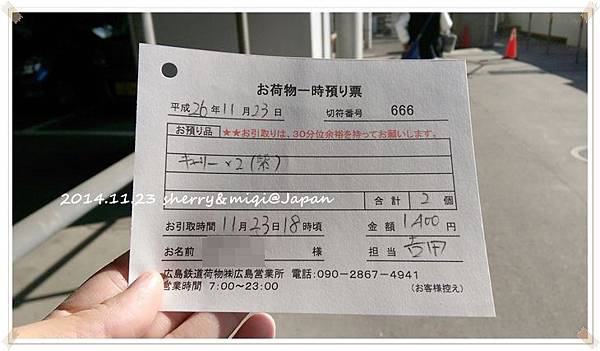 お荷物一時預り票
平成 26 年 11 月 23 日 切符番号 666
お預り品 ★★お引取りは、30分位余裕を持ってお願いします。
キャリー×2 (紫)
合計 2 個
お引取時間 11月23日18時頃 金額 1400 円
お名前 様 担当 吉田
広島鉄道荷物㈱広島営業所 電話:090-2867-4941
営業時間 7:00~23:00 (お客様控え)
2014.11.23 sherry&miqi@Japan